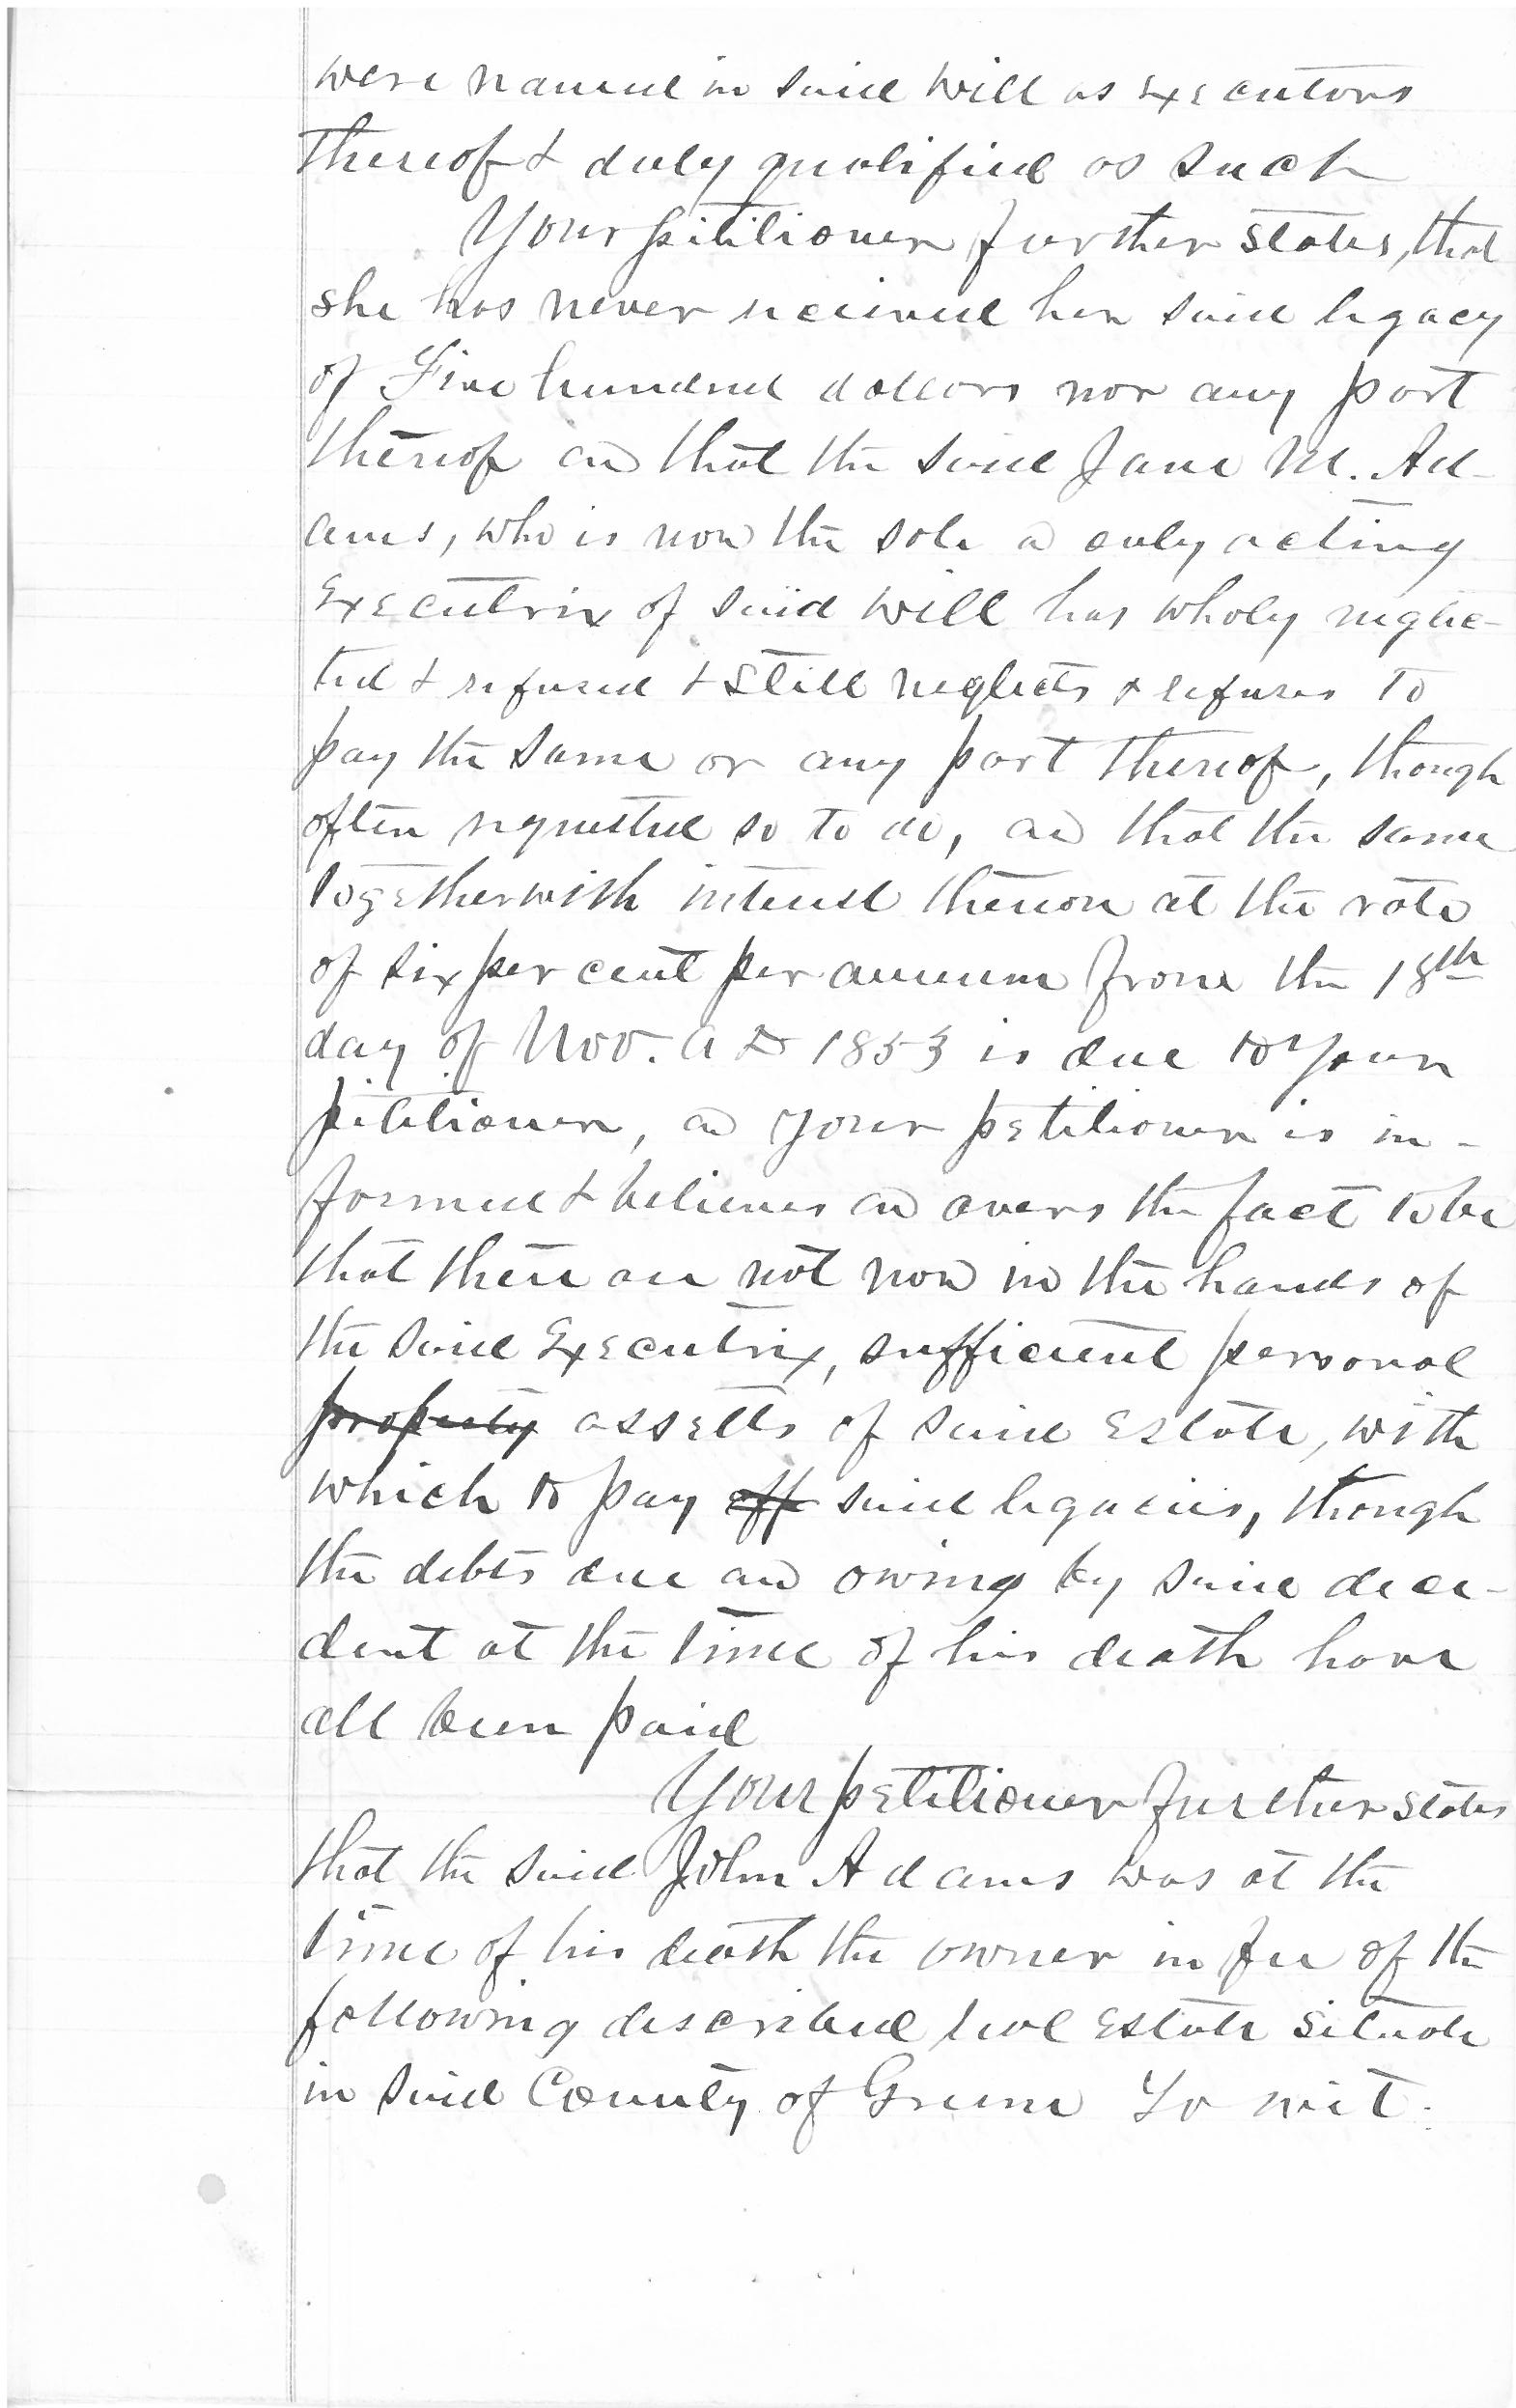 were named in said Will as Executors
thereof & duly qualified as such
Your petitioner further states, that
she has never received her said legacy
of Five hundred dollars nor any part
thereof and that the said Jane M. Ad-
ams, who is now the sole and only acting
Executrix of said Will has wholy neglec-
ted & refused & still neglects & refuses to
pay the same or any part thereof, though
often requested so to do, and that the same
together with interest thereon at the rate
of six per cent per annum from the 18th
day of Nov. A D 1853 is due to your
petitioner, and your petitioner is in-
formed & believes and avers the fact to be
that there are not now in the hands of
the said Executrix, sufficient personal
property assetts of said Estate, with
which to pay off said legacies, though
the debts due and owing by said dece-
dent at the time of his death have
all been paid
Your petitioner further states
that the said John Adams was at the
time of his death the owner in fee of the
following described real Estate situate
in said County of Greene To wit: